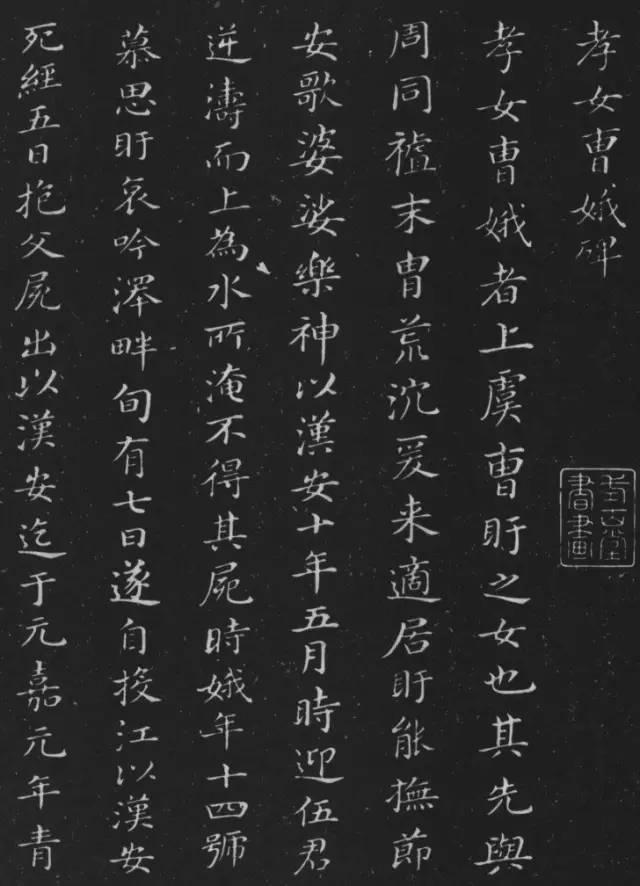 孝女曹娥碑
書畫
孝女曹娥者上虞曹盱之女也其先與
周同祖末胄荒沈爰来適居盱能撫節
安歌婆娑樂神以漢安十年五月時迎伍君
逆濤而上為水所淹不得其屍時娥年十四號
慕思盱哀吟澤畔旬有七日遂自投江以漢安
死經五日抱父屍出以漢安迄于元嘉元年青